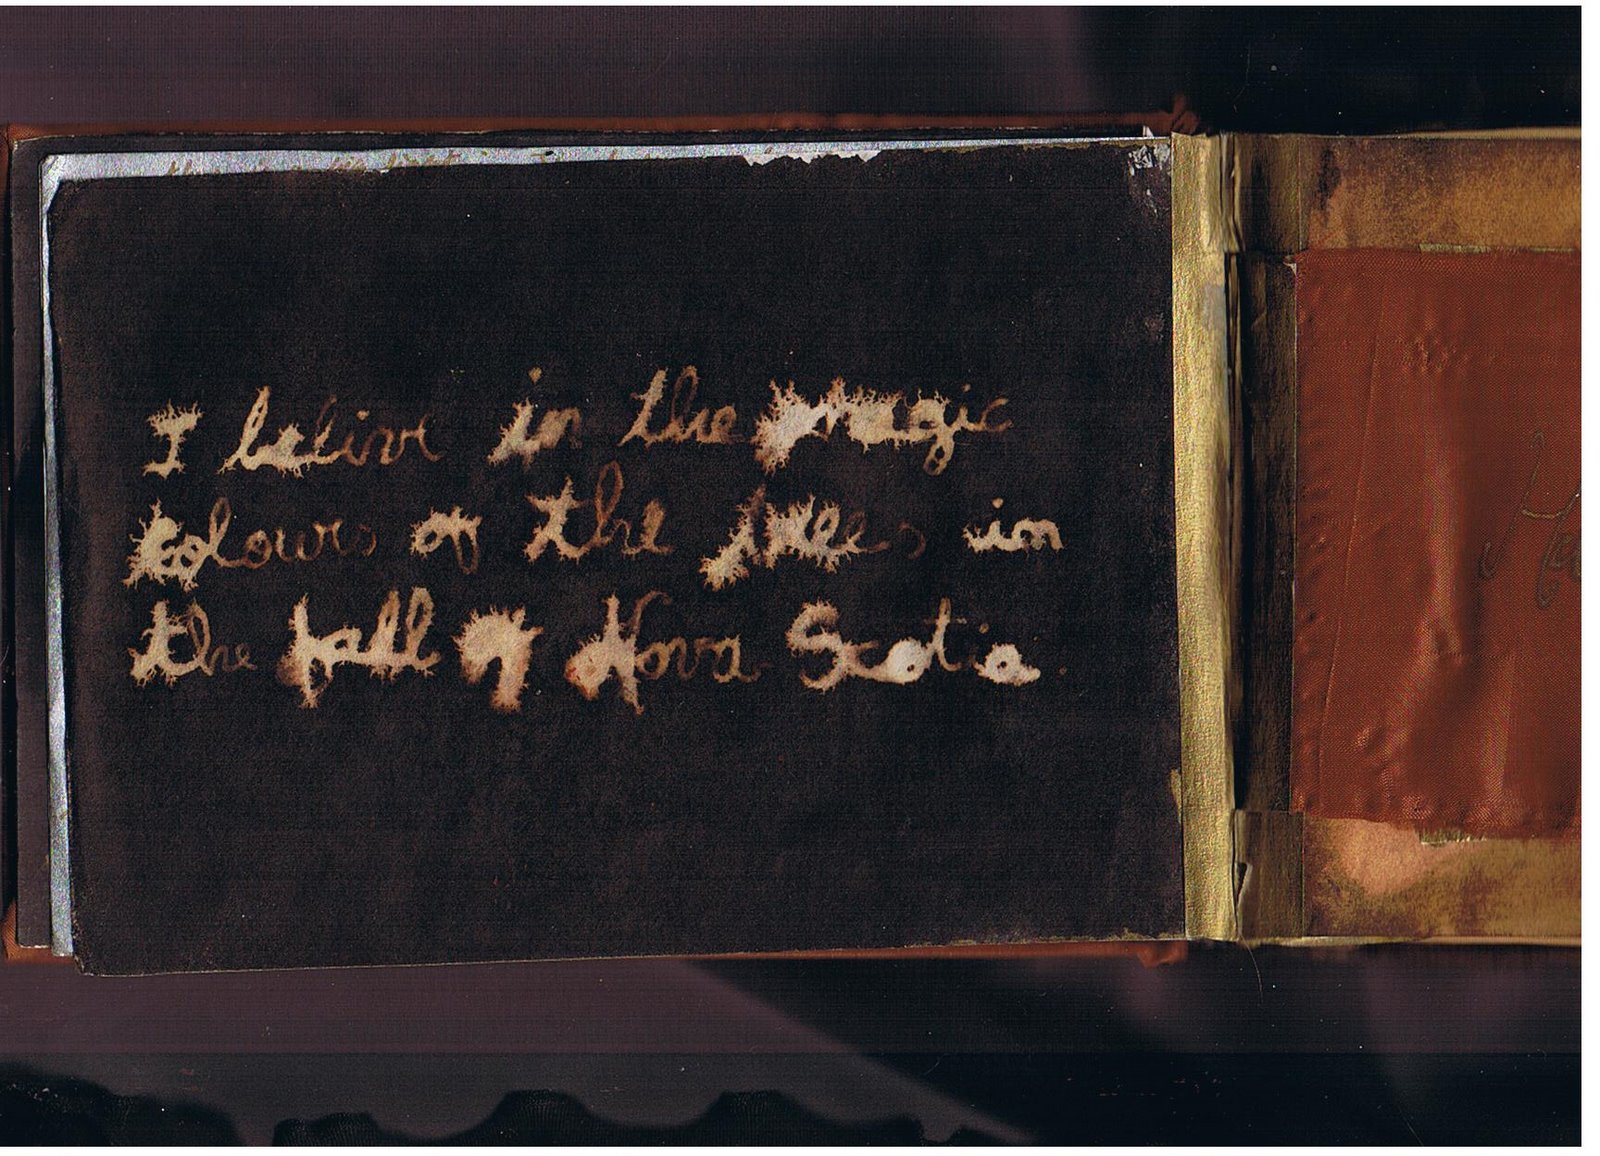 I believe in the magic
colours of the trees in
the fall of Nova Scotia.